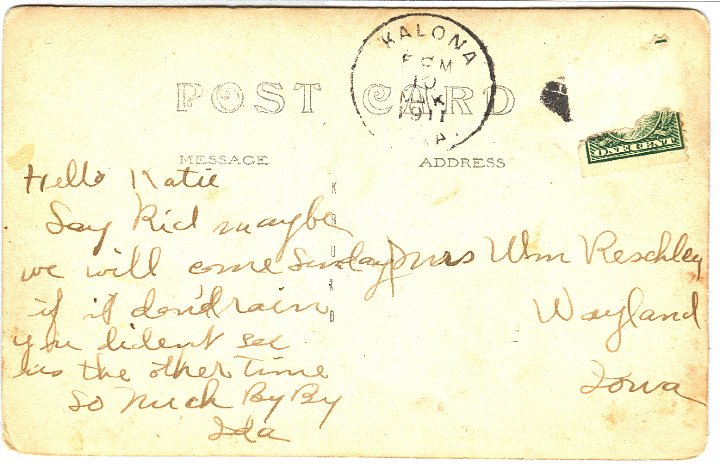 KALONA
PM
10
1911
IA.
POST CARD
MESSAGE
ADDRESS
ONE CENT
Hello Katie
Say Kid maybe
we will come Sunday
if it dond rain
you dident see
us the other time
So Much By By
Ida
KRUXO
Mrs Wm Reschley
Wayland
Iowa